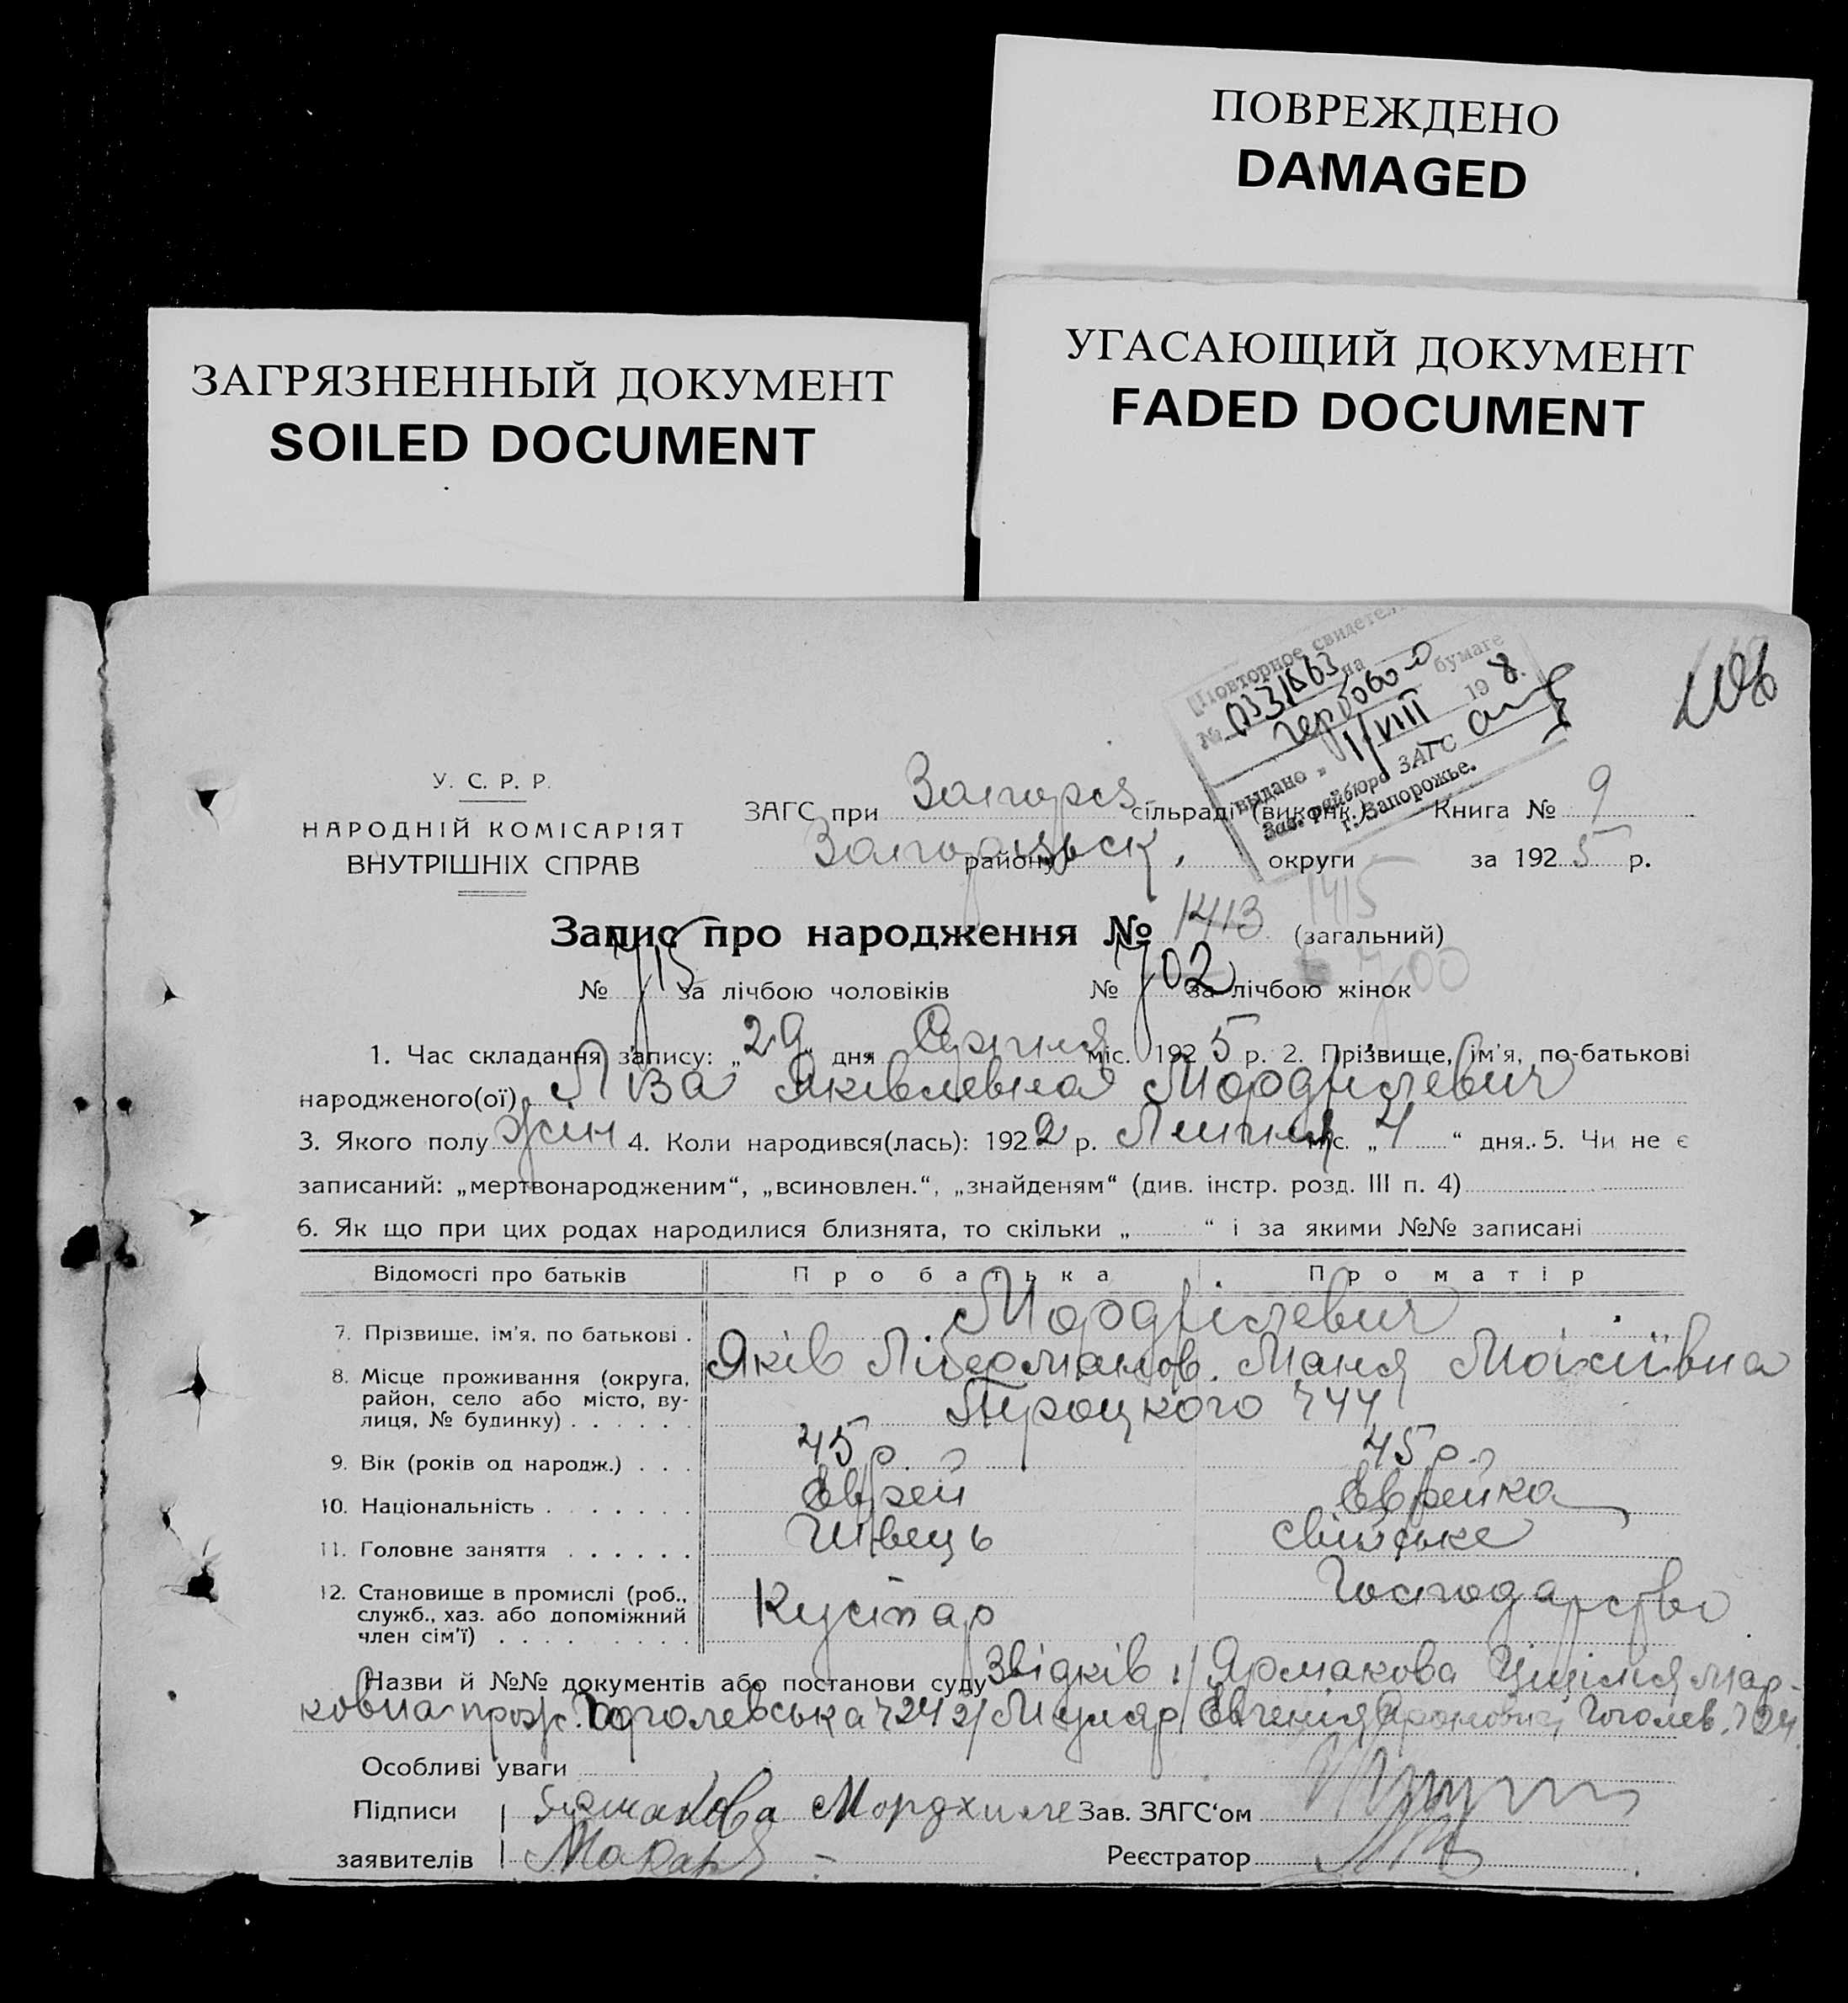 ПОВРЕЖДЕНО
DAMAGED
ЗАГРЯЗНЕННЫЙ ДОКУМЕНТ
SOILED DOCUMENT
УГАСАЮЩИЙ ДОКУМЕНТ
FADED DOCUMENT
Повторное свидетел
№ на гербовой бумаге
выдано „1/VIII 198 г.
Зав. райбюро ЗАГС
г. Запорожье.
У. С. Р. Р.
НАРОДНІЙ КОМІСАРІЯТ
ВНУТРІШНІХ СПРАВ
ЗАГС при сільраді (виконк.) Книга № 9
району округи за 1925 р.
Запис про народження № 1413 (загальний)
1415
№ 715 за лічбою чоловіків № 702 за лічбою жінок
700
1. Час складання запису: „29„ дня Серпня міс. 1925 р. 2. Прізвище, ім'я, по-батькові
народженого(ої) Ліва Яківлевна Мордхілевич
3. Якого полу жін 4. Коли народився(лась): 1922 р. Липня міс. „4“ дня. 5. Чи не є
записаний: „мертвонародженим“, „всиновлен.“, „знайденям“ (див. інстр. розд. III п. 4)
6. Як що при цих родах народилися близнята, то скільки „ “ і за якими №№ записані
Відомості про батьків Про батька Про матір
7. Прізвище, ім'я, по батькові . Мордхілевич
Яків Ліберманов. Маня Мойсіївна
8. Місце проживання (округа,
район, село або місто, ву-
лиця, № будинку) . . . . . . Троцкого ч 44
9. Вік (років од народж.) . . . 45 р. 45 р.
10. Національність . . . . . . . Еврей Еврейка
11. Головне заняття . . . . . . Швець хатнє
12. Становище в промислі (роб.,
служб., хаз. або допоміжний
член сім'ї) . . . . . . . . . Кустар Господарство
Назви й №№ документів або постанови суду Звідків 1/ Ярмакова Мар-
ковна прож. Гоголевська ч 24 2/ Муляр Евгенія Гоголев. ч 24
Особливі уваги
Підписи Ярмакова Мордхиле Зав. ЗАГС'ом
заявителів Реєстратор